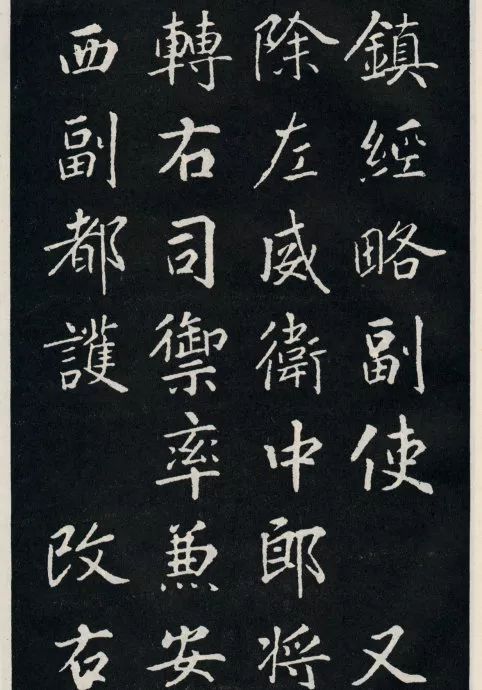 鎮經略副使 又
除左威衛中郎將
轉右司禦率兼安
西副都護 改右